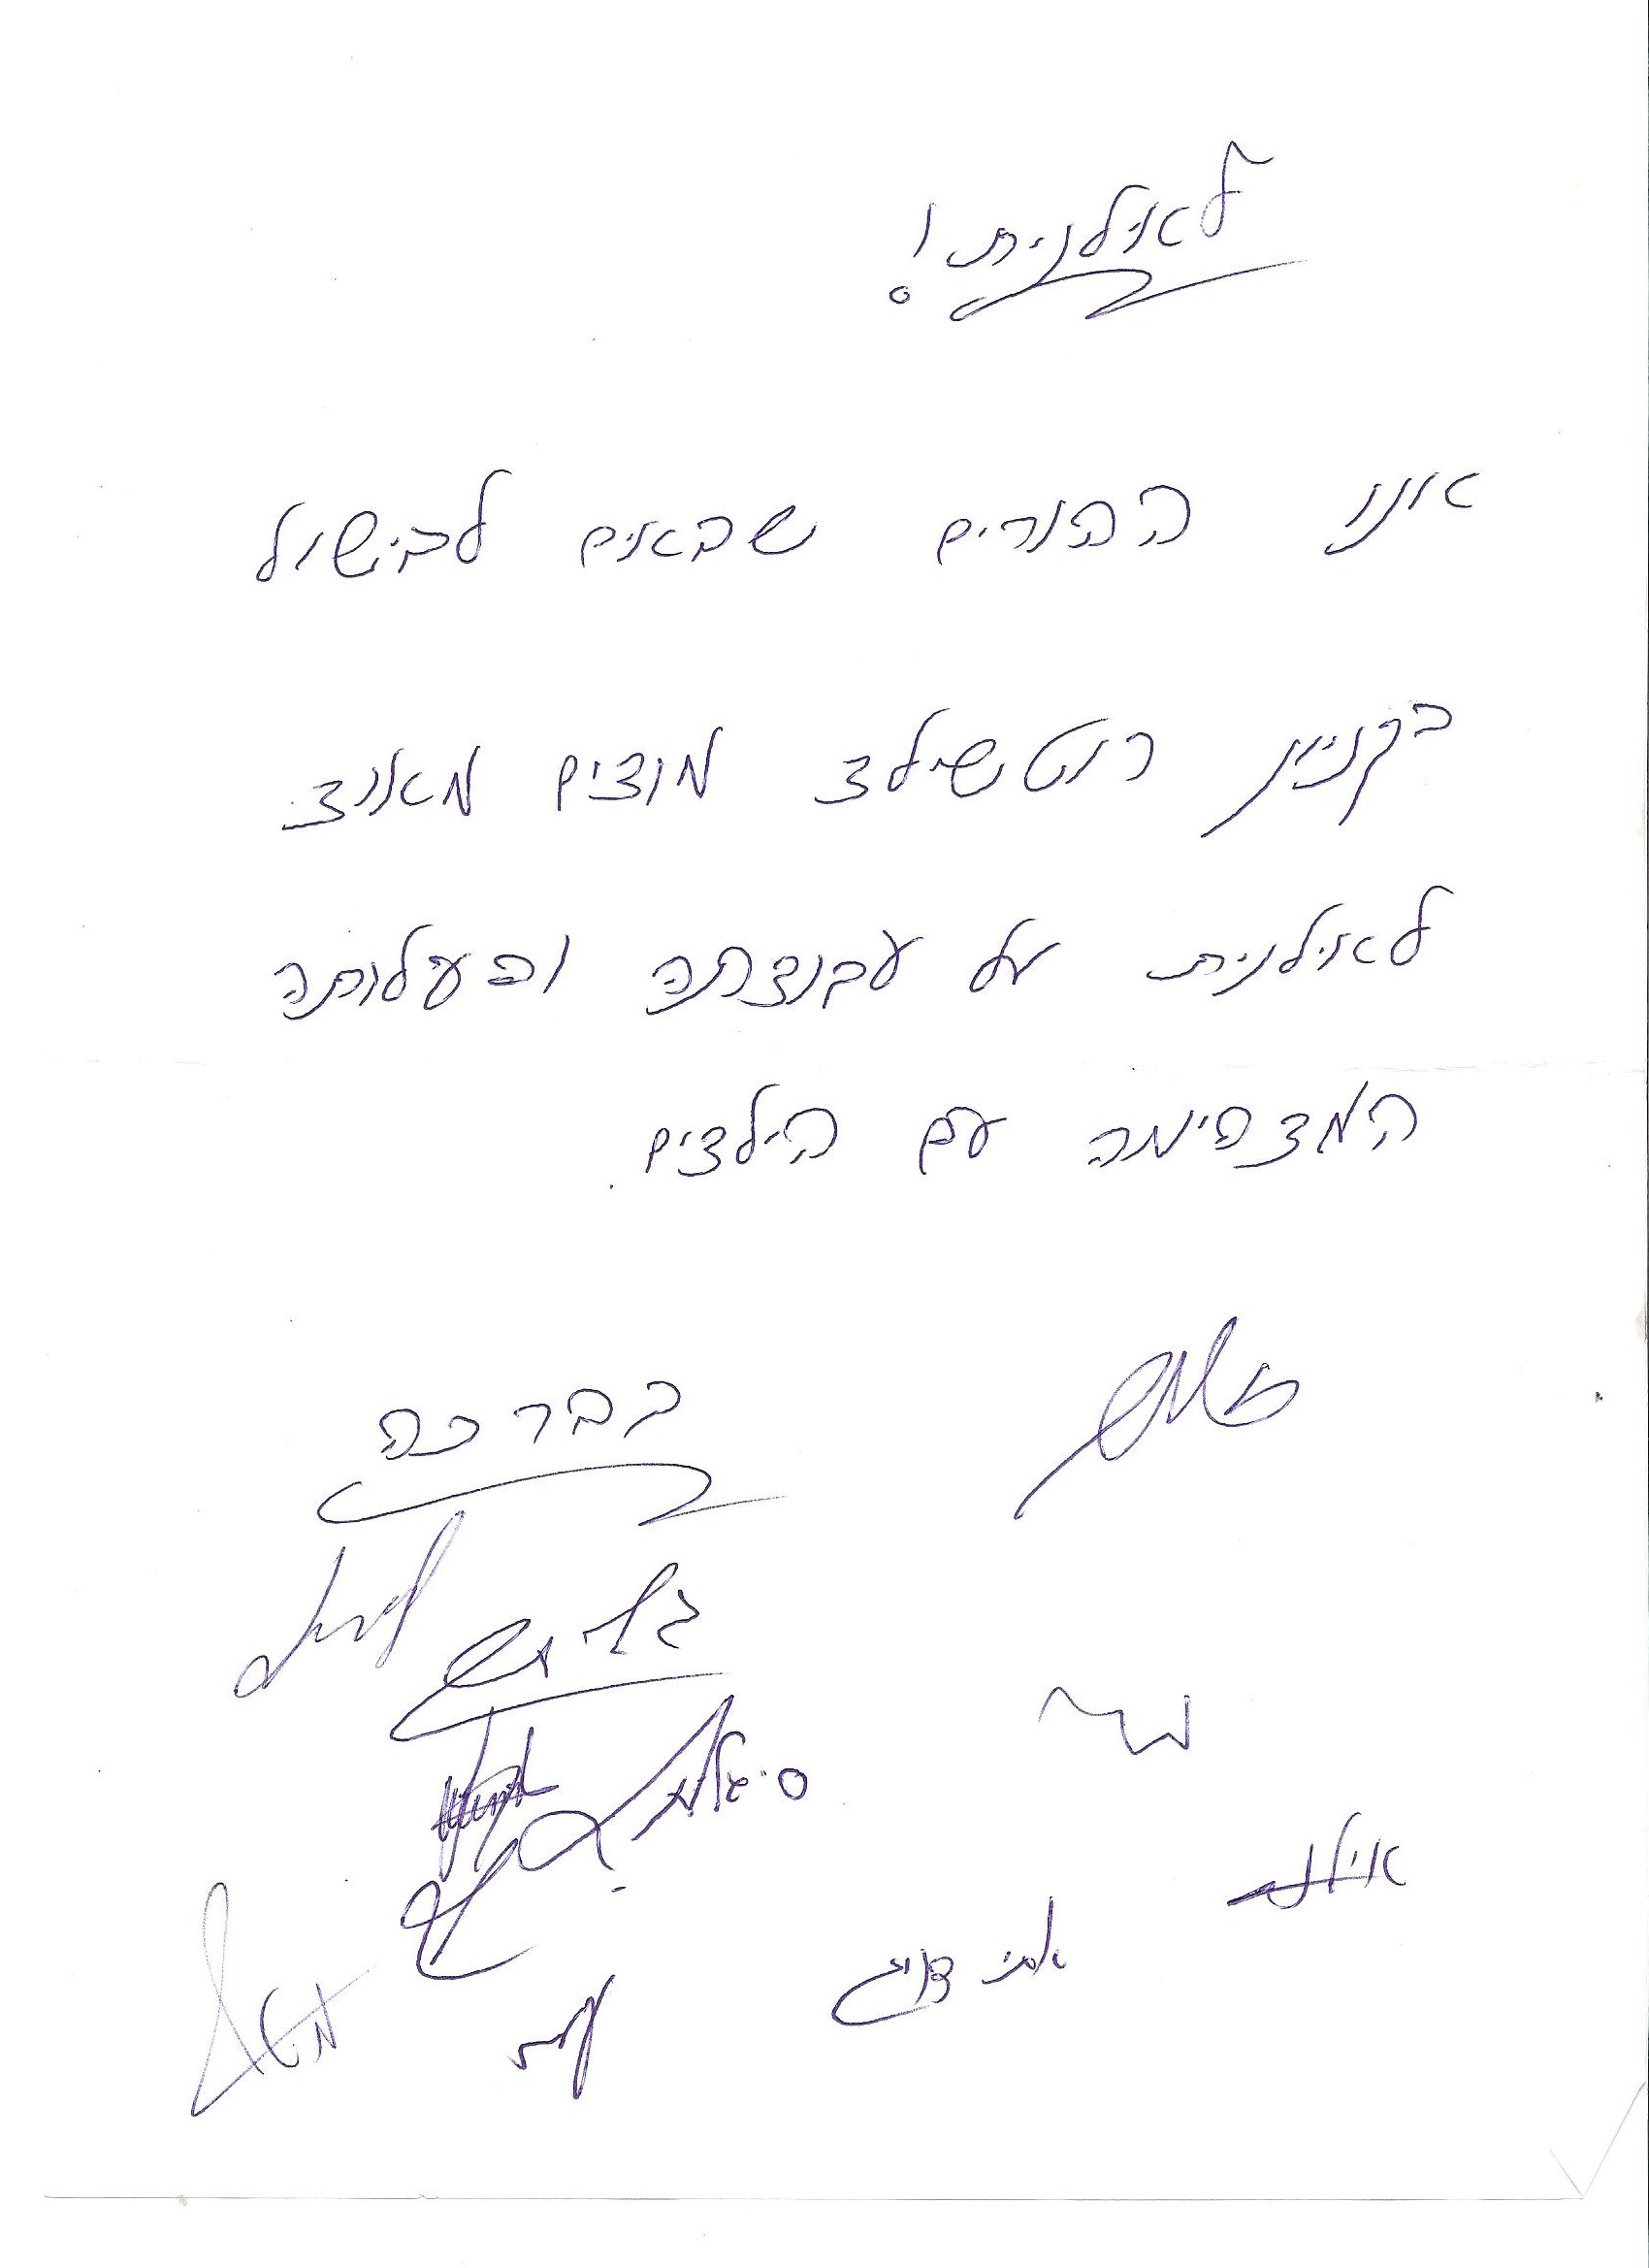 לאילנית!
אנו ההורים שבאים לבישול
בקניון רוטשילד מודים מאוד
לאילנית על עבודתה ופעלותה
המדהימה עם הילדים.
בברכה
סיגלית
אילנה